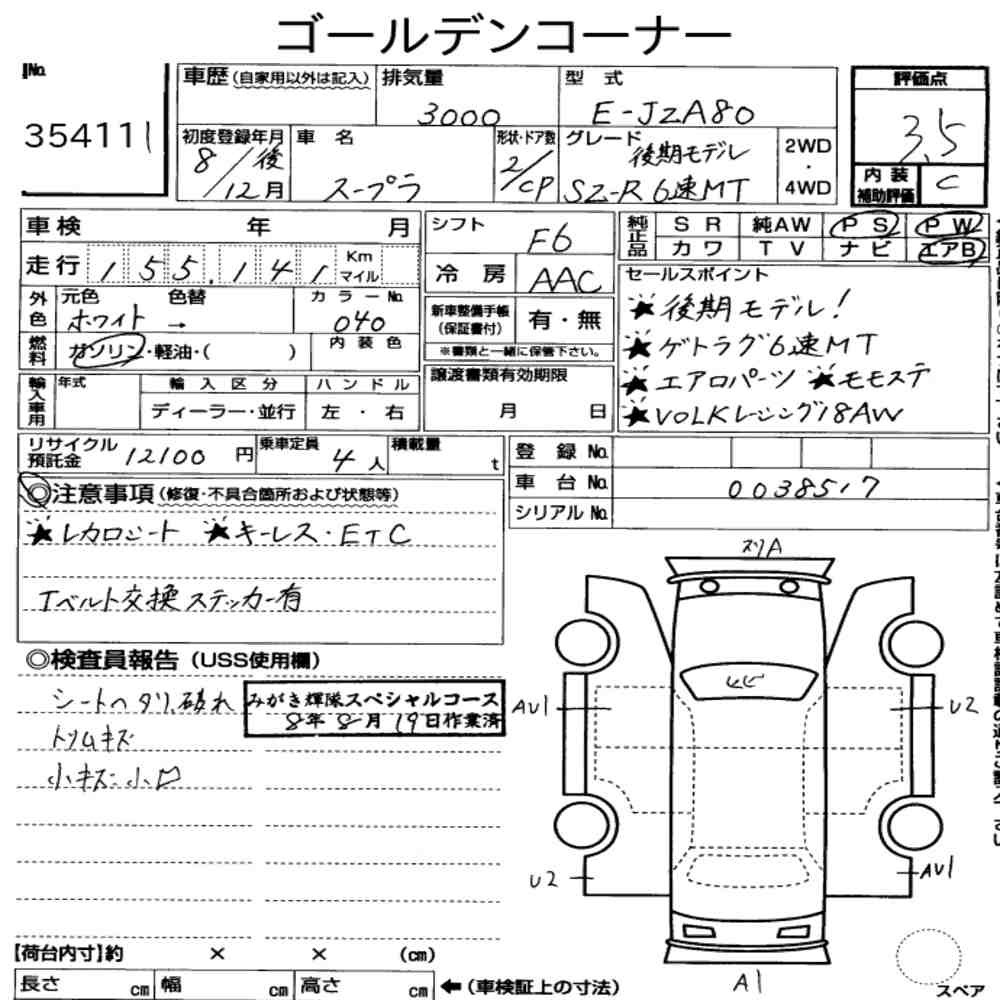 ゴールデンコーナー
No.
354111
車歴(自家用以外は記入)
排気量
3000
型 式
E-JZA80
評価点
3.5
内装補助評価
C
初度登録年月
8/後
12月
車 名
スープラ
形状・ドア数
2/CP
グレード
後期モデル
SZ-R 6速MT
2WD
・
4WD
車検 年 月
走行 155,141 Km マイル
外色
元色 色替 カラーNo.
ホワイト → 040
燃料
ガソリン・軽油・( )
内装色
輸入車用
年式
輸入区分
ハンドル
ディーラー・並行
左・右
シフト
F6
冷房
AAC
新車整備手帳(保証書付)
有・無
※書類と一緒に保管下さい。
譲渡書類有効期限
月 日
純正品
SR 純AW PS PW
カワ TV ナビ エアB
セールスポイント
★後期モデル!
★ゲトラグ6速MT
★エアロパーツ ★モモステ
★VOLKレーシング18AW
リサイクル預託金 12100円
乗車定員 4人
積載量 t
登録No.
車台No. 0038517
シリアルNo.
◎注意事項(修復・不具合箇所および状態等)
★レカロシート ★キーレス・ETC
Tベルト交換ステッカー有
◎検査員報告(USS使用欄)
シートヘタリ、破れ
トリムキズ
小キズ 小凹
みがき輝隊スペシャルコース
8年8月19日作業済
スリA
AU1
U2
U2
AU1
A1
【荷台内寸】約 × × (cm)
長さ cm 幅 cm 高さ cm ←(車検証上の寸法)
スペア